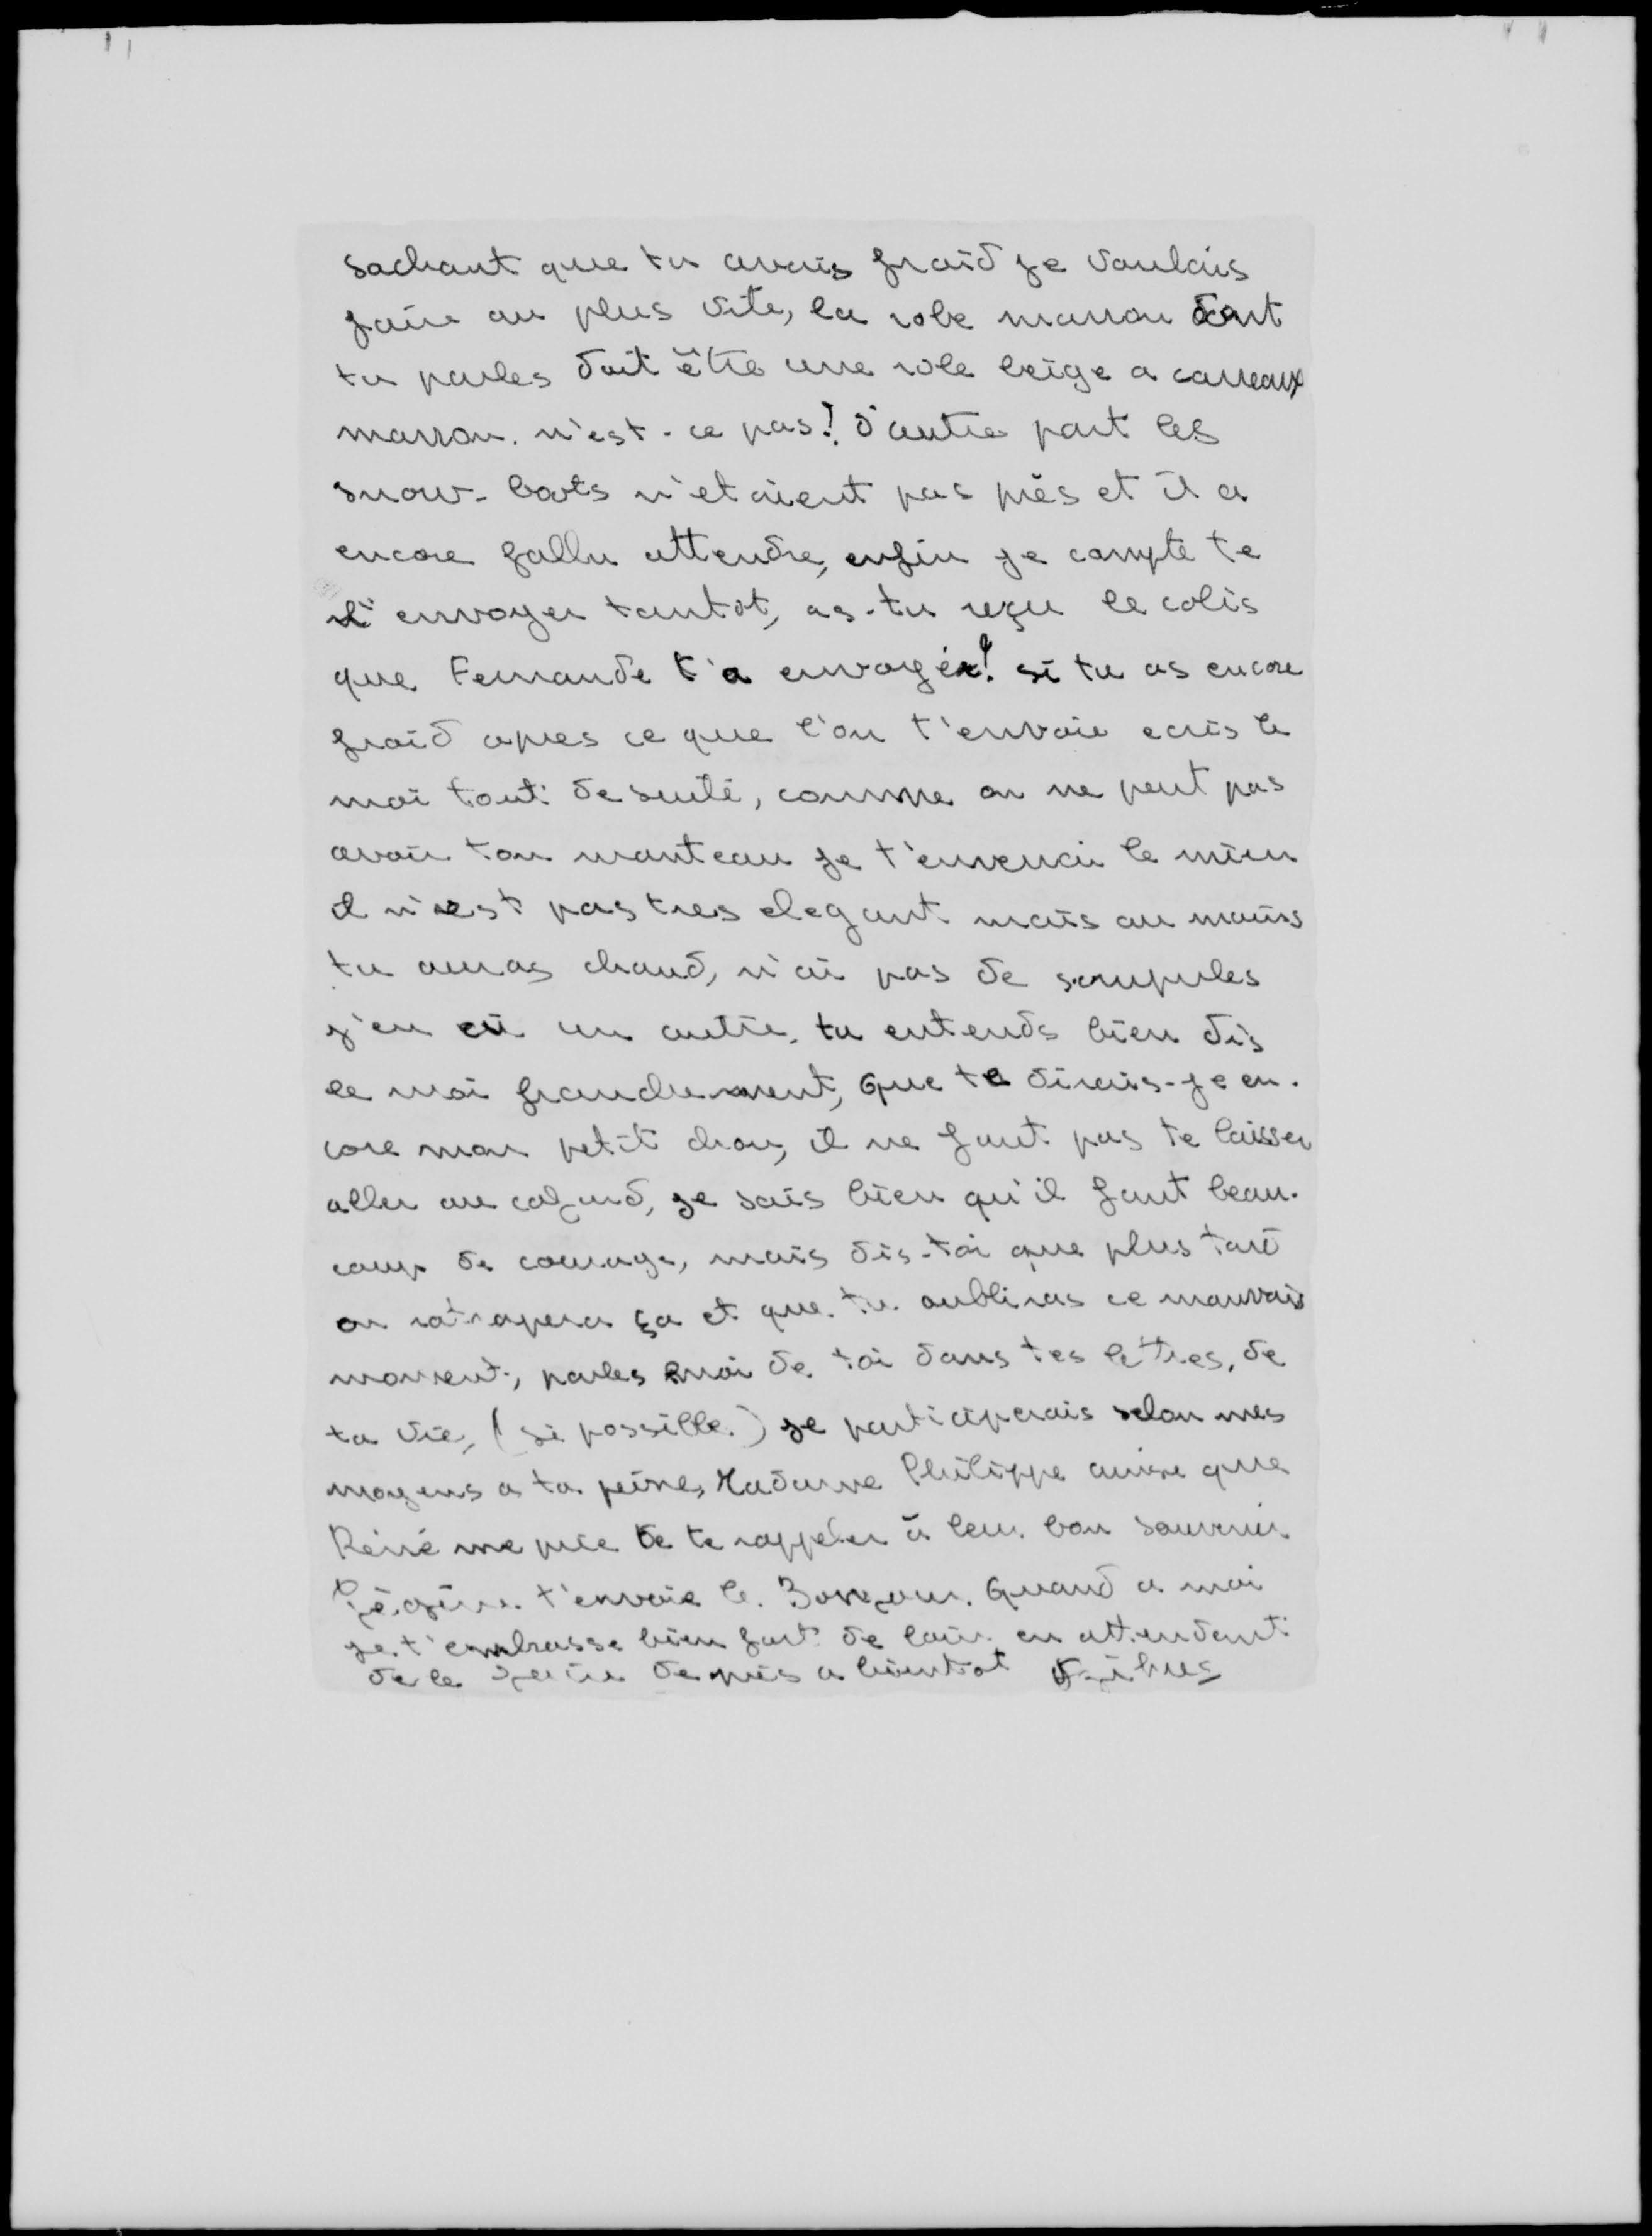 sachant que tu avais froid je voulais
faire au plus vite, la robe marron dont
tu parles doit être une robe beige a carreaux
marron. n'est-ce pas? d'autre part les
snow-boots n'etaient pas près et il a
encore fallu attendre, enfin je compte te
l'envoyer tantôt, as-tu reçu le colis
que Fernande t'a envoyée? si tu as encore
froid apres ce que l'on t'envoie ecris le
moi tout de suite, comme on ne peut pas
avoir ton manteau je t'enverai le mien
il n'est pas tres elegant mais au moins
tu auras chaud, n'ai pas de scrupules
j'en ai un autre, tu entends bien dis
le moi franchement, que te dirais-je en-
core mon petit chou, il ne faut pas te laisser
aller au cafard, je sais bien qu'il faut beau-
coup de courage, mais dis-toi que plus tard
on ratrapera ça et que tu oubliras ce mauvais
moment, parles moi de toi dans tes lettres, de
ta vie, (si possible.) je participerais selon mes
moyens a ta peine, Madame Philippe ainsi que
Réné me prie de te rappeler à leur bon souvenir
t'envoie le Bonjour. Quand a moi
je t'embrasse bien fort de loin en attendant
de le faire de près a bientot